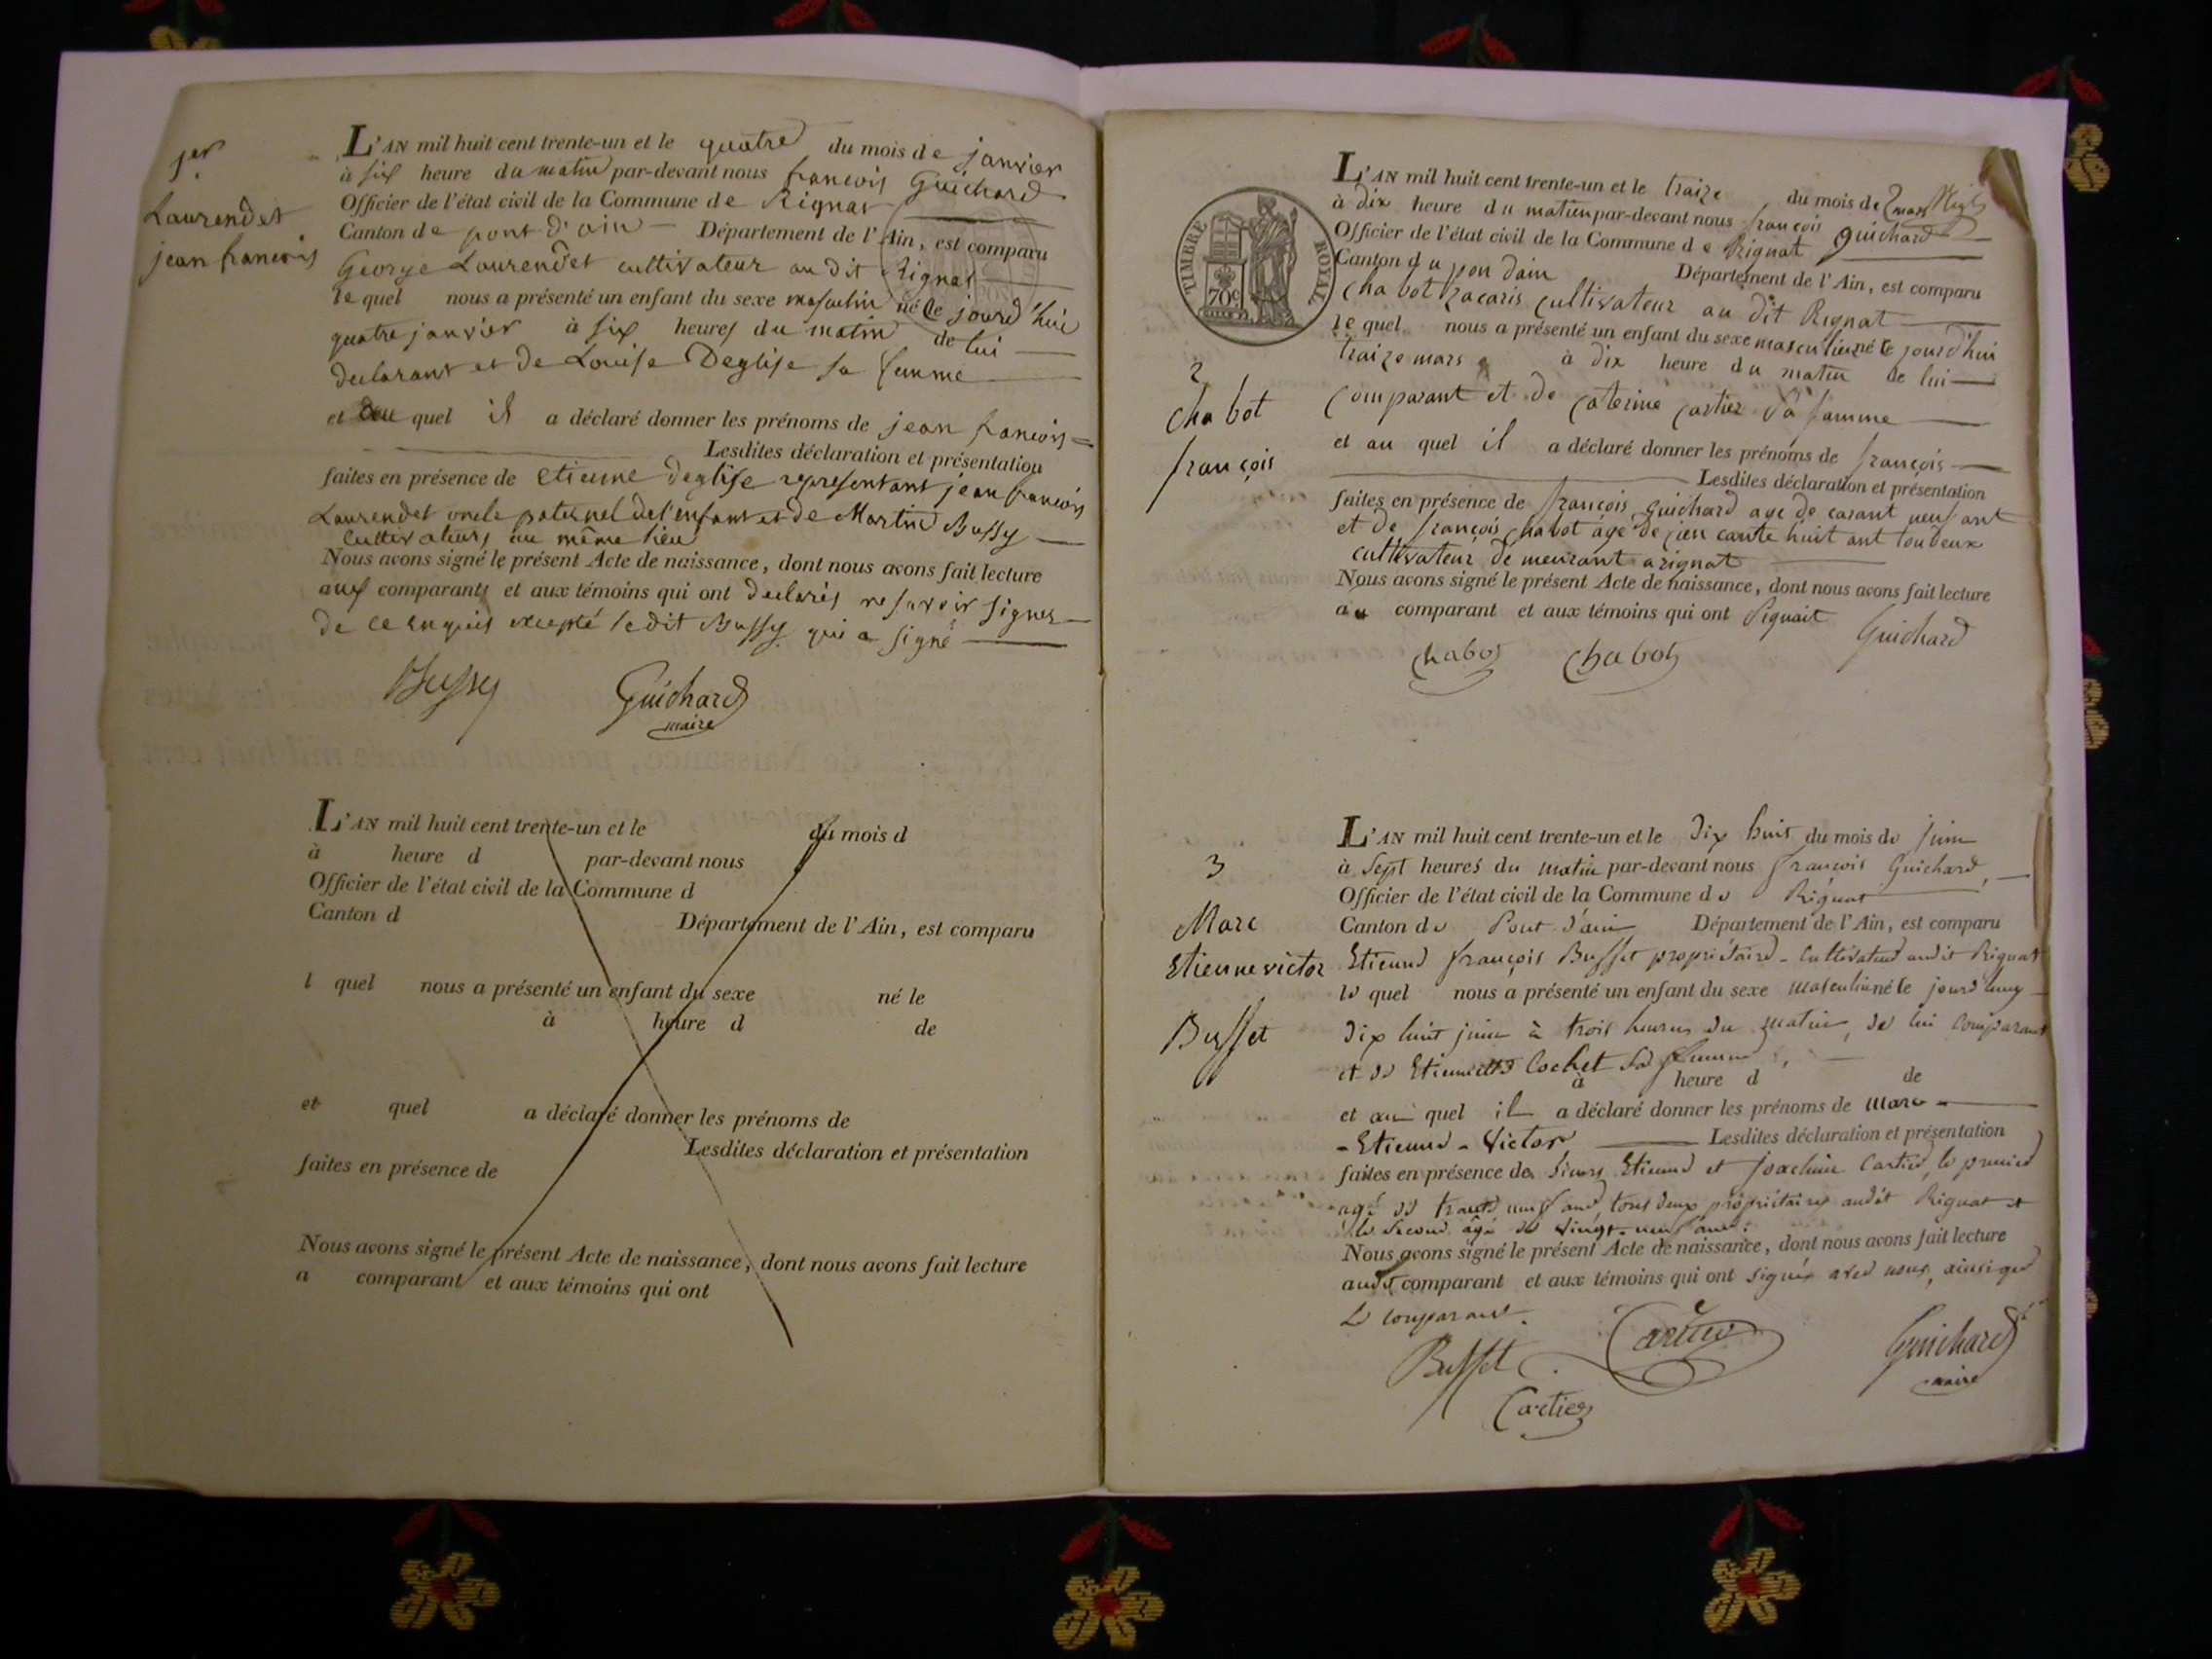 1er
Laurendet
jean francois
L'AN mil huit cent trente-un et le quatre du mois de janvier
à six heure du matin par-devant nous francois Guichard
Officier de l'état civil de la Commune de Rignat
Canton de pont d'ain Département de l'Ain, est comparu
George Laurendet cultivateur au dit Rignat
le quel nous a présenté un enfant du sexe masculin né le jourd'hui
quatre janvier à six heures du matin de lui
declarant et de Louise Deglise sa femme
et au quel il a déclaré donner les prénoms de jean francois
Lesdites déclaration et présentation
faites en présence de etienne deglise representant jean francois
Laurendet oncle paternel de l'enfant et de Martin Bussy
cultivateurs au même lieu
Nous avons signé le présent Acte de naissance, dont nous avons fait lecture
aux comparants et aux témoins qui ont declarés ne savoir signer
de ce enquis excepté ledit Bussy qui a signé
Bussy Guichard
maire
L'AN mil huit cent trente-un et le du mois d
à heure d par-devant nous
Officier de l'état civil de la Commune d
Canton d Département de l'Ain, est comparu
l quel nous a présenté un enfant du sexe né le
à heure d de
et quel a déclaré donner les prénoms de
Lesdites déclaration et présentation
faites en présence de
Nous avons signé le présent Acte de naissance, dont nous avons fait lecture
a comparant et aux témoins qui ont
TIMBRE ROYAL
70c
2
Chabot
françois
L'AN mil huit cent trente-un et le traize du mois de mars
à dix heure du matieu par-devant nous françois guichard
Officier de l'état civil de la Commune de Rignat
Canton du pon dain Département de l'Ain, est comparu
Chabot zacaris cultivateur au dit Rignat
le quel nous a présenté un enfant du sexe masculien né le jourd'hui
traize mars à dix heure du matin de lui
comparant et de caterine cartier sa famme
et au quel il a déclaré donner les prénoms de françois
Lesdites déclaration et présentation
faites en présence de françois guichard age de carant neuf ant
et de françois chabot age de cien cante huit ant toudeux
cultivateur de meurant arignat
Nous avons signé le présent Acte de naissance, dont nous avons fait lecture
au comparant et aux témoins qui ont Signait
Guichard
Chabot Chabot
3
Marc
Etienne victor
Buffet
L'AN mil huit cent trente-un et le dix huit du mois de juin
à Sept heures du matin par-devant nous francois Guichard,
Officier de l'état civil de la Commune de Rignat
Canton de Pont d'ain Département de l'Ain, est comparu
Etienne françois Buffet propriétaire-cultivateur audit Rignat
le quel nous a présenté un enfant du sexe masculin né le jourd'huy
dix huit juin à trois heures du matin, de lui comparant
et de Etiennette Cochet sa femme,
à heure d de
et au quel il a déclaré donner les prénoms de marc
-Etienne-Victor Lesdites déclaration et présentation
faites en présence de Sieurs Etienne et joachim Cartier, le premier
agé de trente neuf ans, tous deux propriétaires audit Rignat et
le second âgé de vingt-neuf ans.
Nous avons signé le présent Acte de naissance, dont nous avons fait lecture
audit comparant et aux témoins qui ont signés avec nous, ainsi que
le comparant.
Buffet Cartier Guichard
maire
Cartier